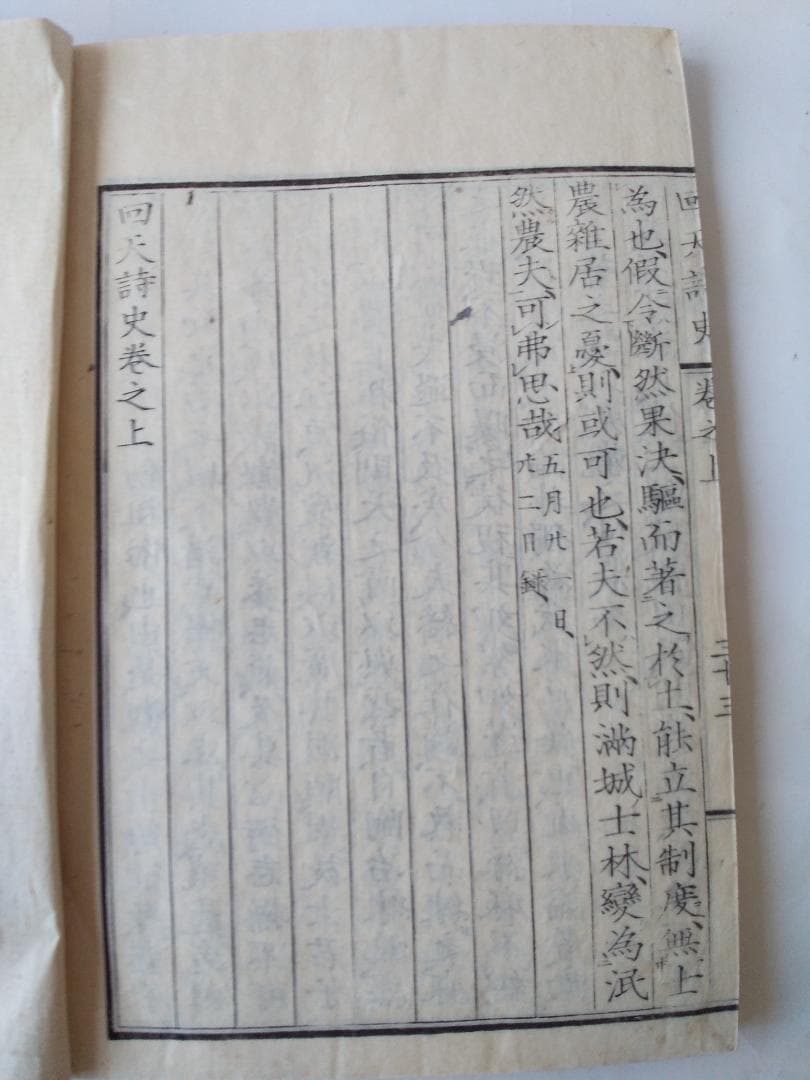 回天詩史 卷之上 三十三
為也、假令斷然果決、驅而著之於土、能立其制度、無上
農雜居之憂、則或可也、若夫不然、則滿城士林、變為汦
然農夫、可弗思哉
五月廿一日、
廿二日錄、
回天詩史卷之上